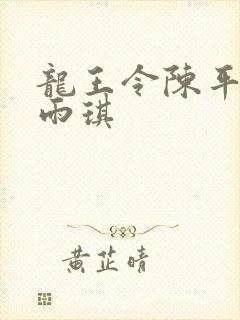 龍王令陳平
雨琪
黃芷晴